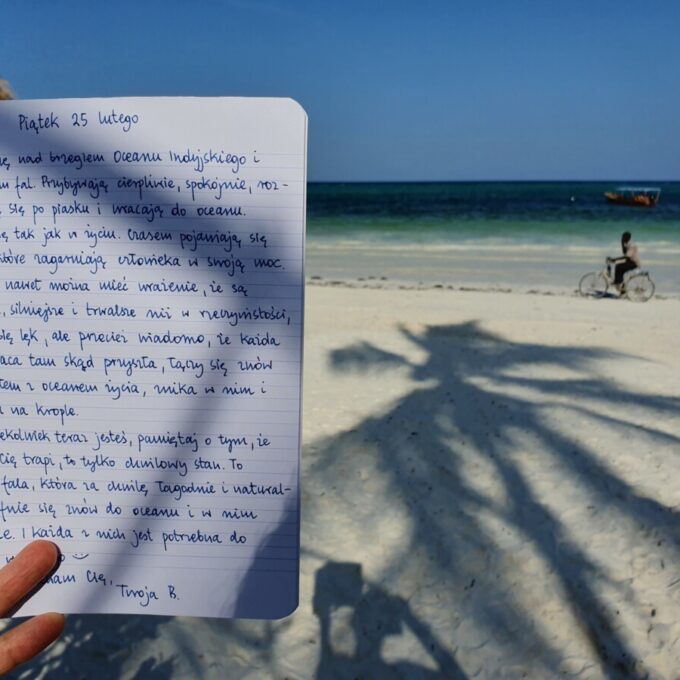 Piątek 25 lutego
nad brzegiem Oceanu Indyjskiego i
fal. Przybywają cierpliwie, spokojnie, roz-
się po piasku i wracają do oceanu.
tak jak w życiu. Czasem pojawiają się
które zagarniają człowieka w swoją moc.
nawet można mieć wrażenie, że są
silniejsze i trwalsze niż w rzeczywistości,
lęk, ale przecież wiadomo, że każda
tam skąd przyszła, łączy się znów
z oceanem życia, znika w nim i
na krople.
teraz jesteś, pamiętaj o tym, że
Cię trapi, to tylko chwilowy stan. To
fala, która za chwilę łagodnie i natural-
się znów do oceanu i w nim
I każda z nich jest potrzebna do
Cię,
Twoja B.